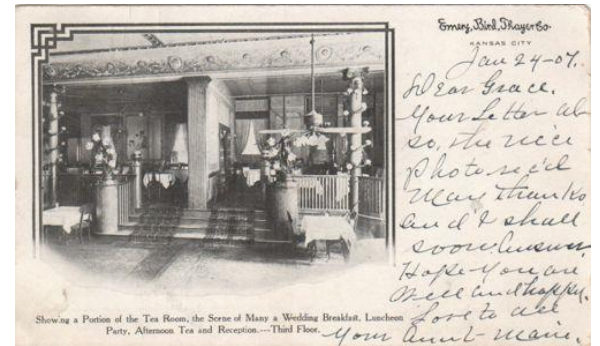 Emery, Bird, Thayer Co
KANSAS CITY
Jan 24-07.
Dear Grace.
Your Letter al
so, the nice
Photo rec'd
Many thanks
and I shall
soon answer.
Hope you are
Well and happy.
Love to all
Your Aunt- Marie.
Showing a Portion of the Tea Room, the Scene of Many a Wedding Breakfast, Luncheon
Party, Afternoon Tea and Reception.---Third Floor.